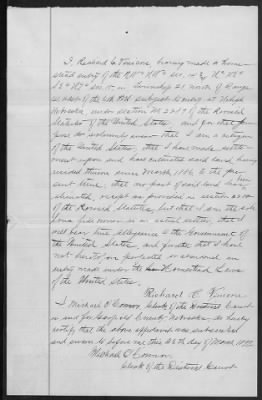 I, Richard C. Vinson, having made a Home
stead entry of the
Sec. 15 in Township 21 north of Range
of the 6th P.M. subject to entry at
Nebraska, under section No. 2289 of the Revised
Statutes of the United States, and for that
pose do solemnly swear that I am a citizen
of the United States; that I have made settle
ment upon and have cultivated said land, having
resided thereon since March 1886 to the pre
sent time; that no part of said land has been
alienated, except as provided in section 2288
of the Revised Statutes, but that I am the sole
bona fide owner as an actual settler; that I
will bear true allegiance to the Government of
the United States and further that I have
not heretofore perfected or abandoned an
entry made under the Homestead Laws
of the United States.
Richard C. Vinson
I, Michael O'Connor, Clerk of the District Court
in and for Garfield County Nebraska do hereby
certify that the above affidavit was subscribed
and sworn to before me this 25 day of March
Michael O'Connor
Clerk of the District Court